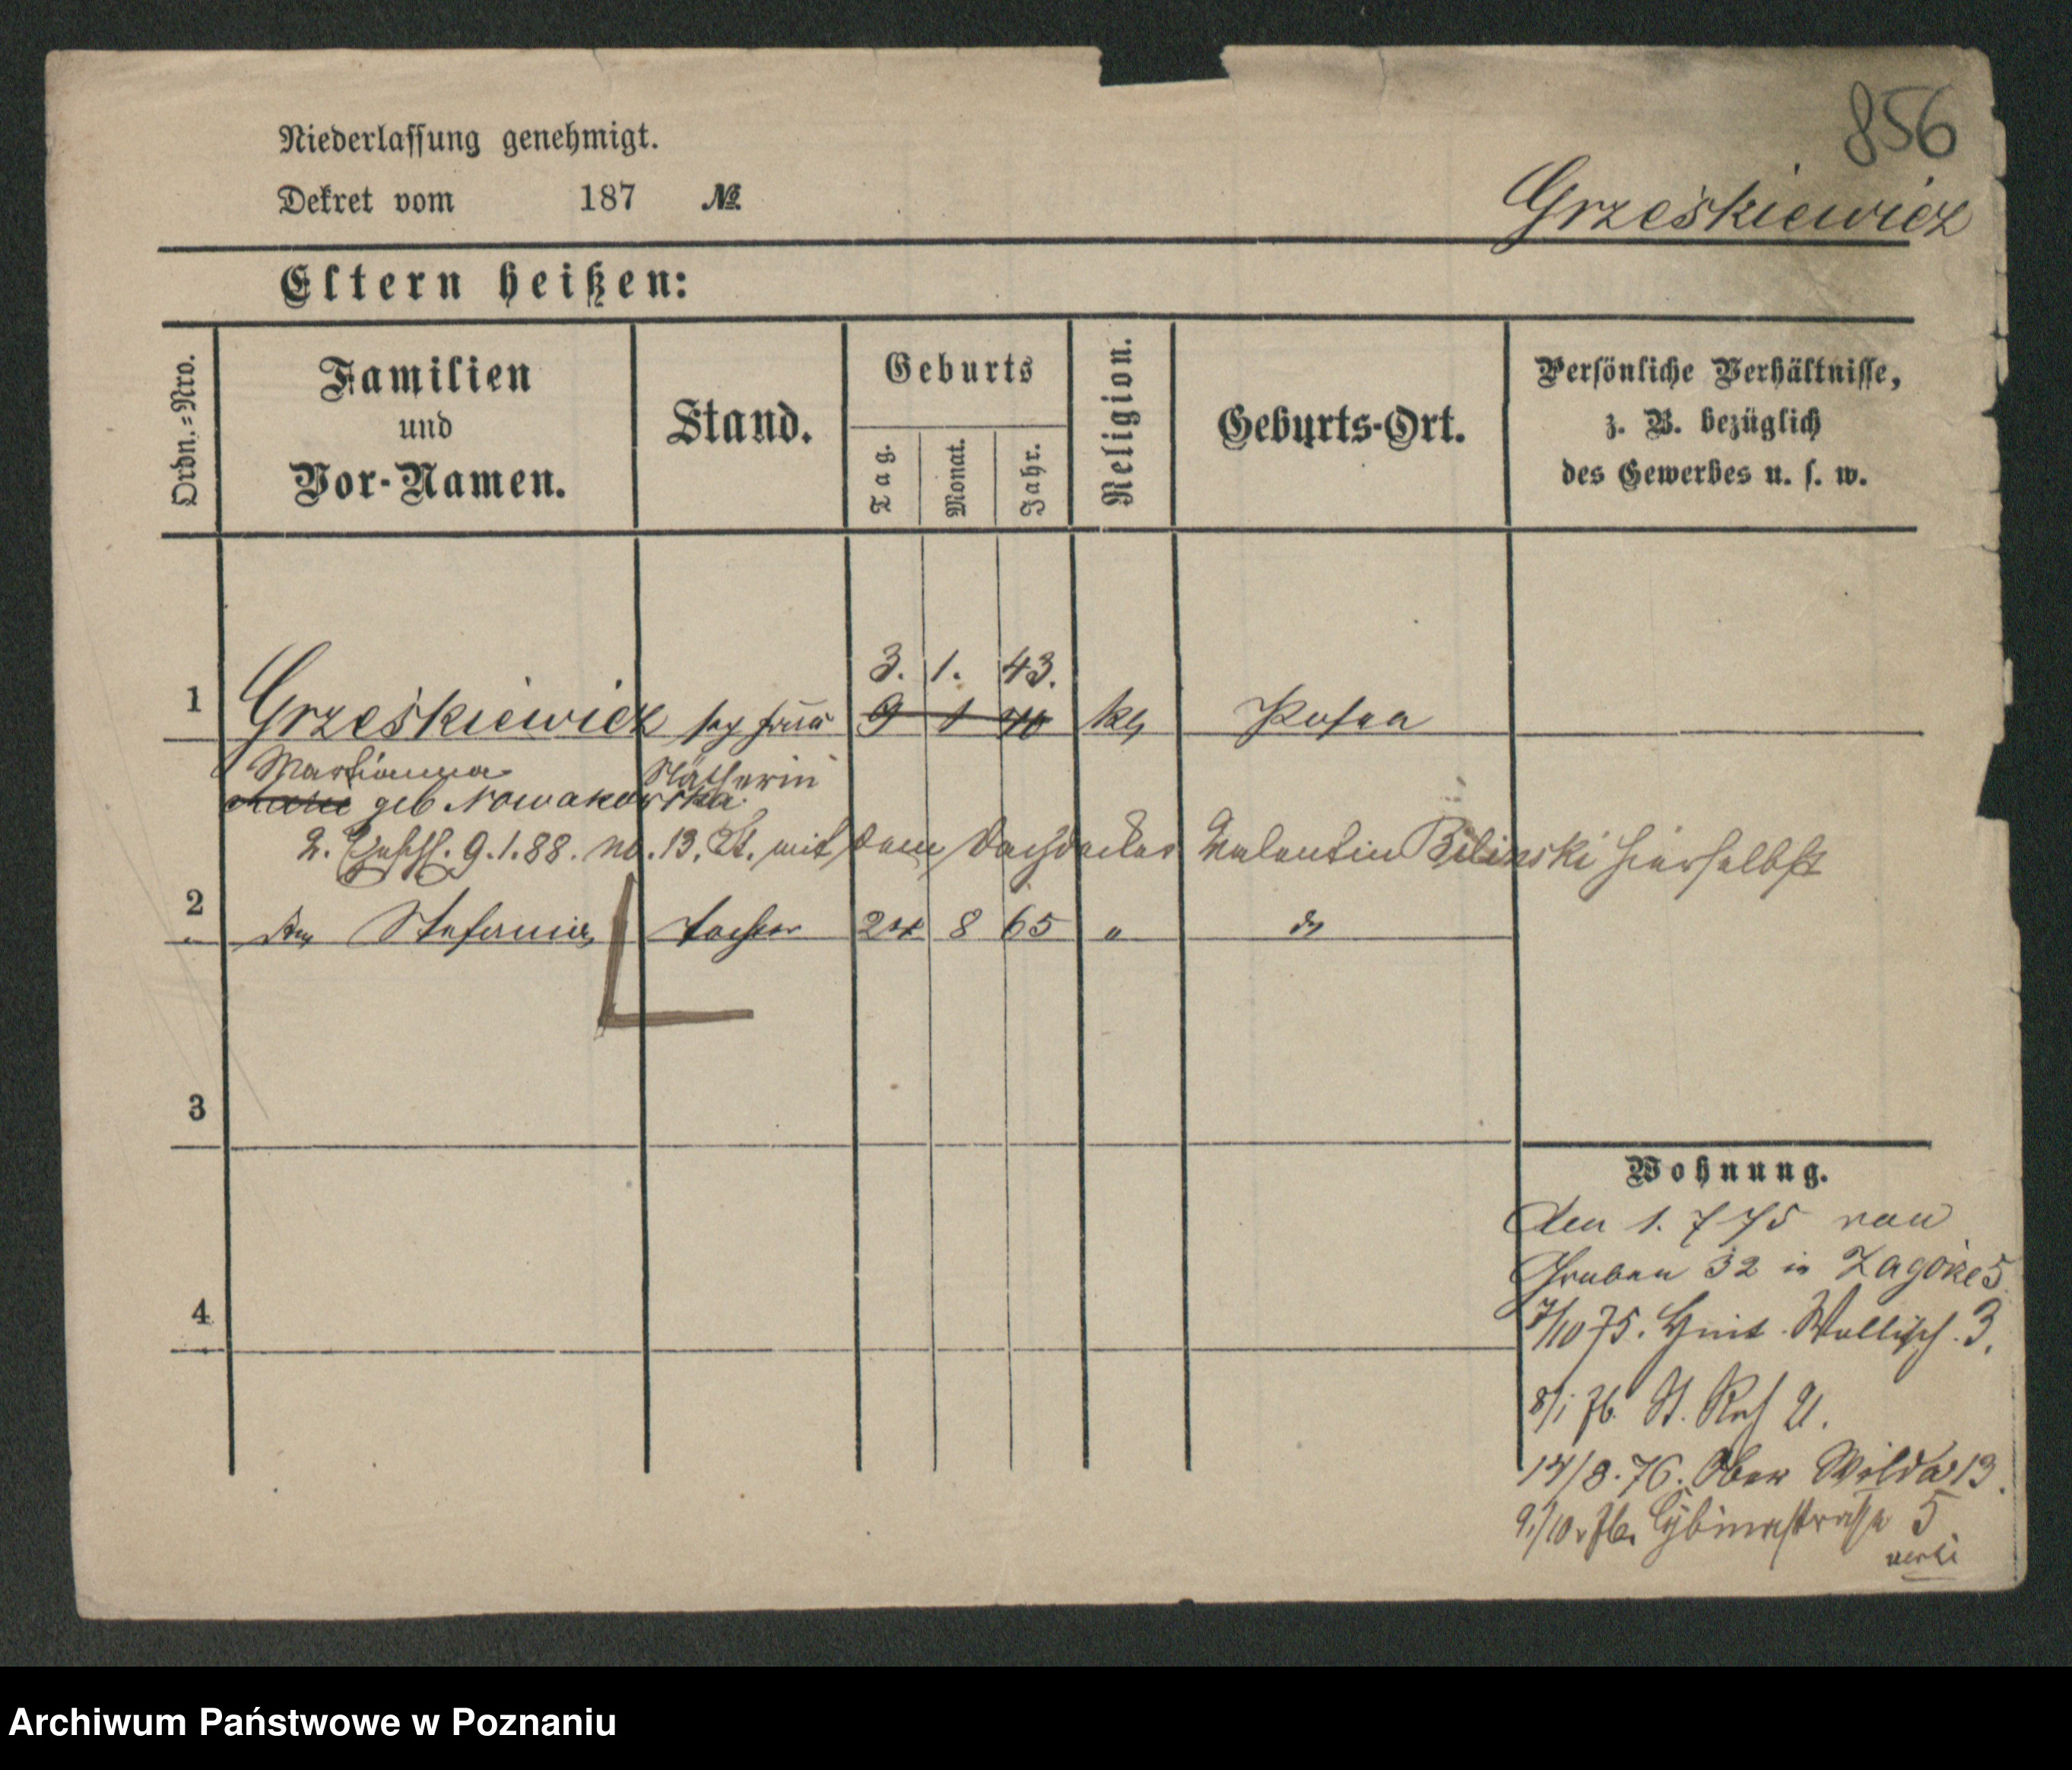 856
Niederlassung genehmigt.
Dekret vom 187 №
Grześkiewicz
Eltern heißen:
Ordn.=Nro.
Familien
und
Vor-Namen.
Stand.
Geburts
Tag.
Monat.
Jahr.
Religion.
Geburts-Ort.
Persönliche Verhältnisse,
z. B. bezüglich
des Gewerbes u. s. w.
3. 1. 43.
1 Grześkiewicz frau 9 1 40 kg Posen
Marianna Nätherin
Marie geb Nowakowska
2. 9.1.88. No. 13. St. mit dem Dachdecker Valentin Bilinski hierselbst
2 Stefania Tochter 24 8 65 " do
3
4
Wohnung.
Den 1. 7 75 von
Graben 32 in Zagorze 5
7/10 75. Hint. Wallisch. 3.
8/1 76. St. 21.
14/8. 76. Ober Wilda 13.
9./10. 76. Cybinastrasse 5
verte
Archiwum Państwowe w Poznaniu